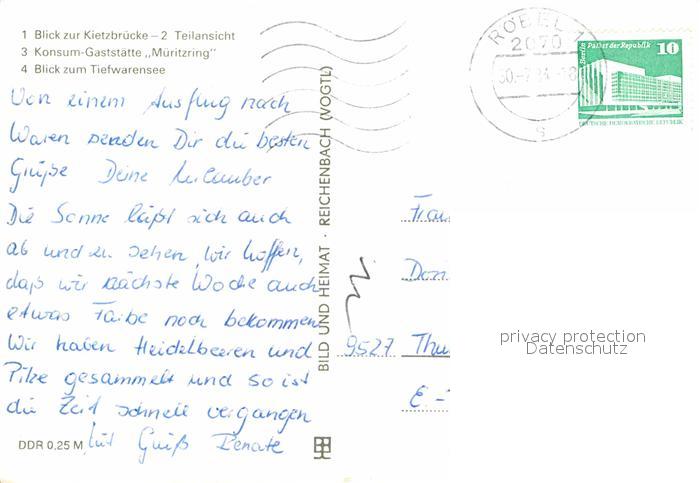 1 Blick zur Kietzbrücke – 2 Teilansicht
3 Konsum-Gaststätte „Müritzring"
4 Blick zum Tiefwarensee
Von einem Ausflug nach
Waren senden Dir die besten
Grüße Deine Urlauber
Die Sonne läßt sich auch
ab und zu sehen, wir hoffen,
daß wir nächste Woche auch
etwas Farbe noch bekommen.
Wir haben Heidelbeeren und
Pilze gesammelt und so ist
die Zeit schnell vergangen
Gruß Renate
DDR 0,25 M
BILD UND HEIMAT · REICHENBACH (VOGTL)
RÖBEL 1
2070
Berlin Palast der Republik 10
DEUTSCHE DEMOKRATISCHE REPUBLIK
Frau
9527 Thu
E. –
privacy protection
Datenschutz